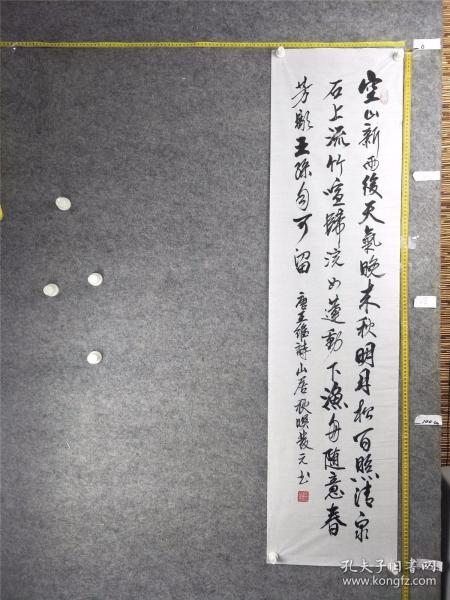 空山新雨後天氣晚来秋明月松間照清泉
石上流竹喧歸浣女蓮動下漁舟隨意春
芳歇王孫自可留
唐王維詩山居秋暝發元书
0
孔夫子旧书网
www.kongfz.com